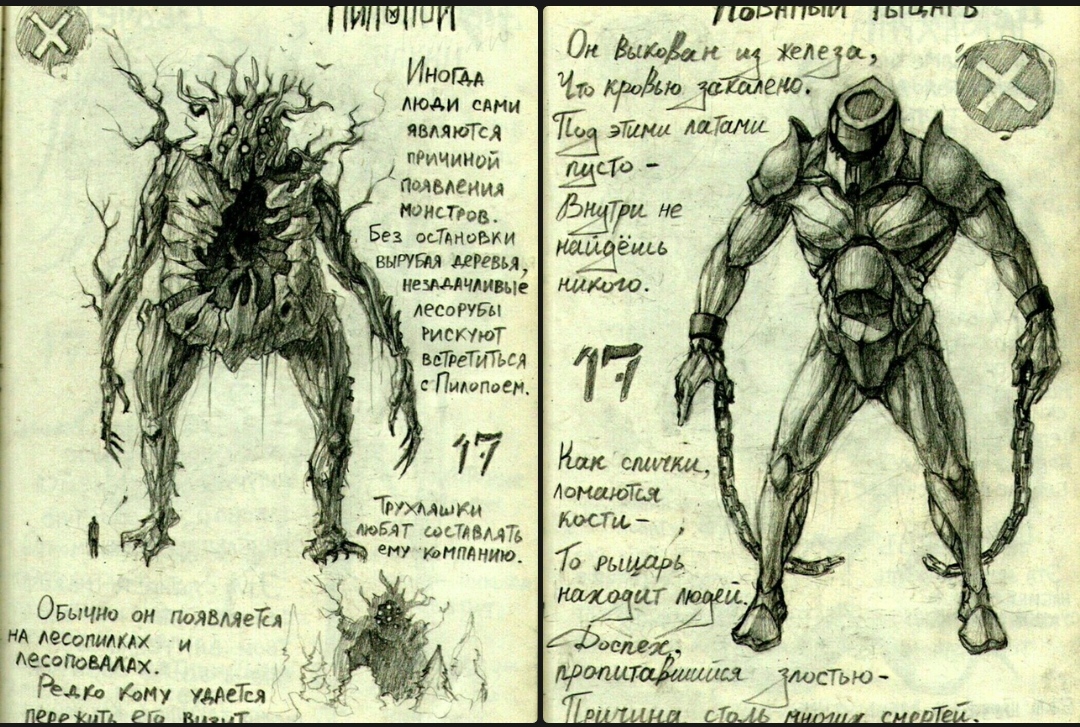 ПИЛОПОЙ
Иногда
люди сами
являются
причиной
появления
монстров.
Без остановки
вырубая деревья,
незадачливые
лесорубы
рискуют
встретиться
с Пилопоем.
17
Трухляшки
любят составлять
ему компанию.
Обычно он появляется
на лесопилках и
лесоповалах.
Редко кому удаётся
пережить его визит
Рыцарь
Он выкован из железа,
Что кровью закалено.
Под этими латами
пусто -
Внутри не
найдёшь
никого.
17
Как спички,
ломаются
кости -
То рыцарь
находит людей.
Доспех,
пропитавшийся злостью -
Причина столь многих смертей.